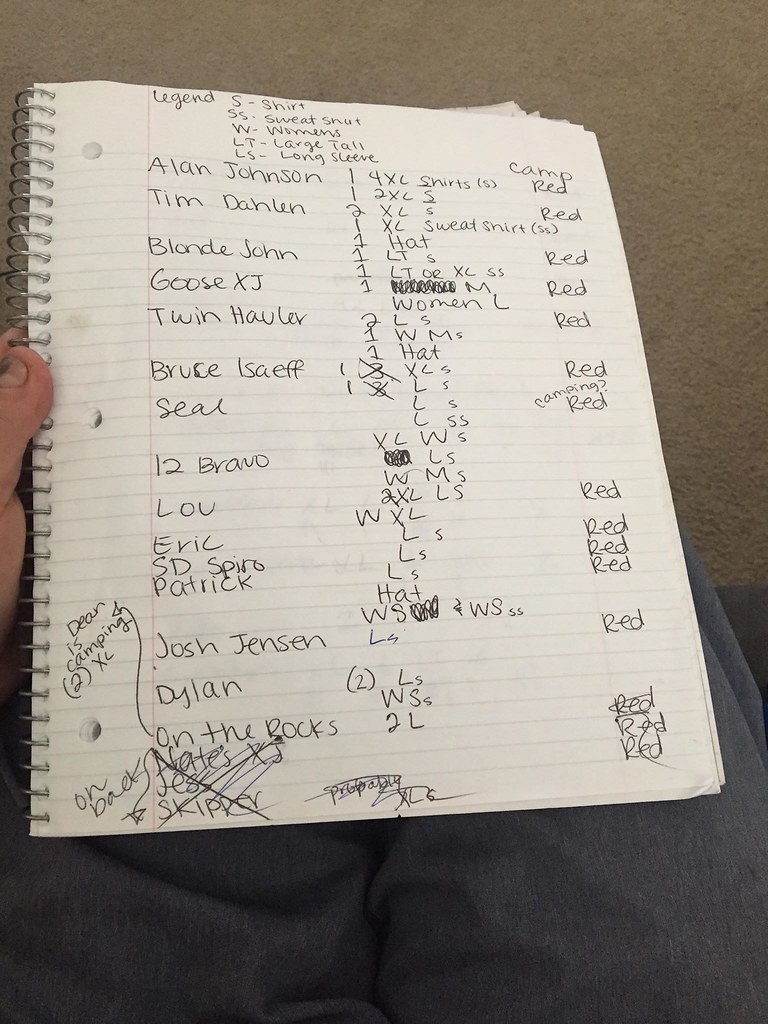 Legend S - Shirt
SS - Sweat Shirt
W - Womens
LT - Large Tall
LS - Long Sleeve
camp
Alan Johnson 1 4XL Shirts (s) Red
1 2XL S
Tim Dahlen 2 XL s Red
1 XL Sweat shirt (ss)
1 Hat
Blonde John 1 LT s Red
1 LT or XL ss
Goose XJ 1 M Red
Women L
Twin Hauler 2 L s Red
1 W M s
1 Hat
Bruce Isaeff 1 XL s Red
1 L s
camping?
Seal L s Red
L ss
XL W s
12 Bravo L s
W M s
2XL LS Red
Lou W XL
L s Red
Eric L s Red
SD Spiro L s Red
Patrick Hat
WS & WS ss
Josh Jensen Ls Red
Dylan (2) Ls
WSs Red
On the Rocks 2 L Red
Nate's XJ Red
Jes
Skipper probable XL s
Dean is camping (2) XL
on back